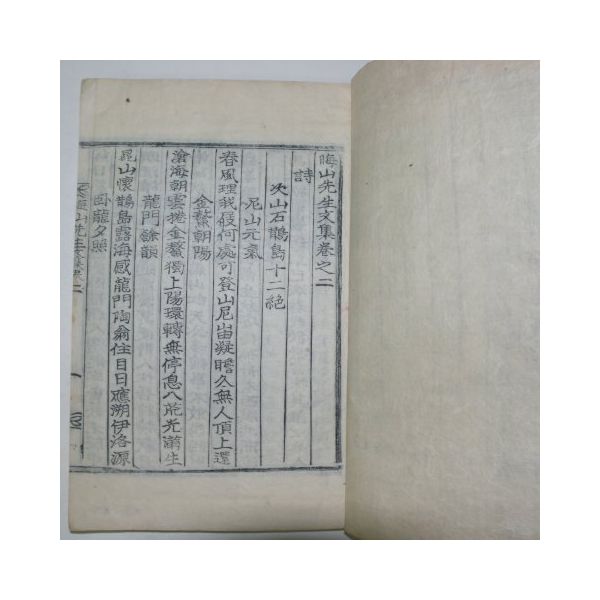 晦山先生文集卷之二
詩
次山石鵲島十二絶
尼山元氣
春風理我屐何處可登山尼岫凝瞻久無人頂上還
金鰲朝陽
滄海朝雲捲金鰲獨上陽環轉無停息八荒光滿生
龍門餘韻
山懷鵲島露海感龍門陶翁住目日應溯伊洛源
臥龍夕照
山先生文集 二